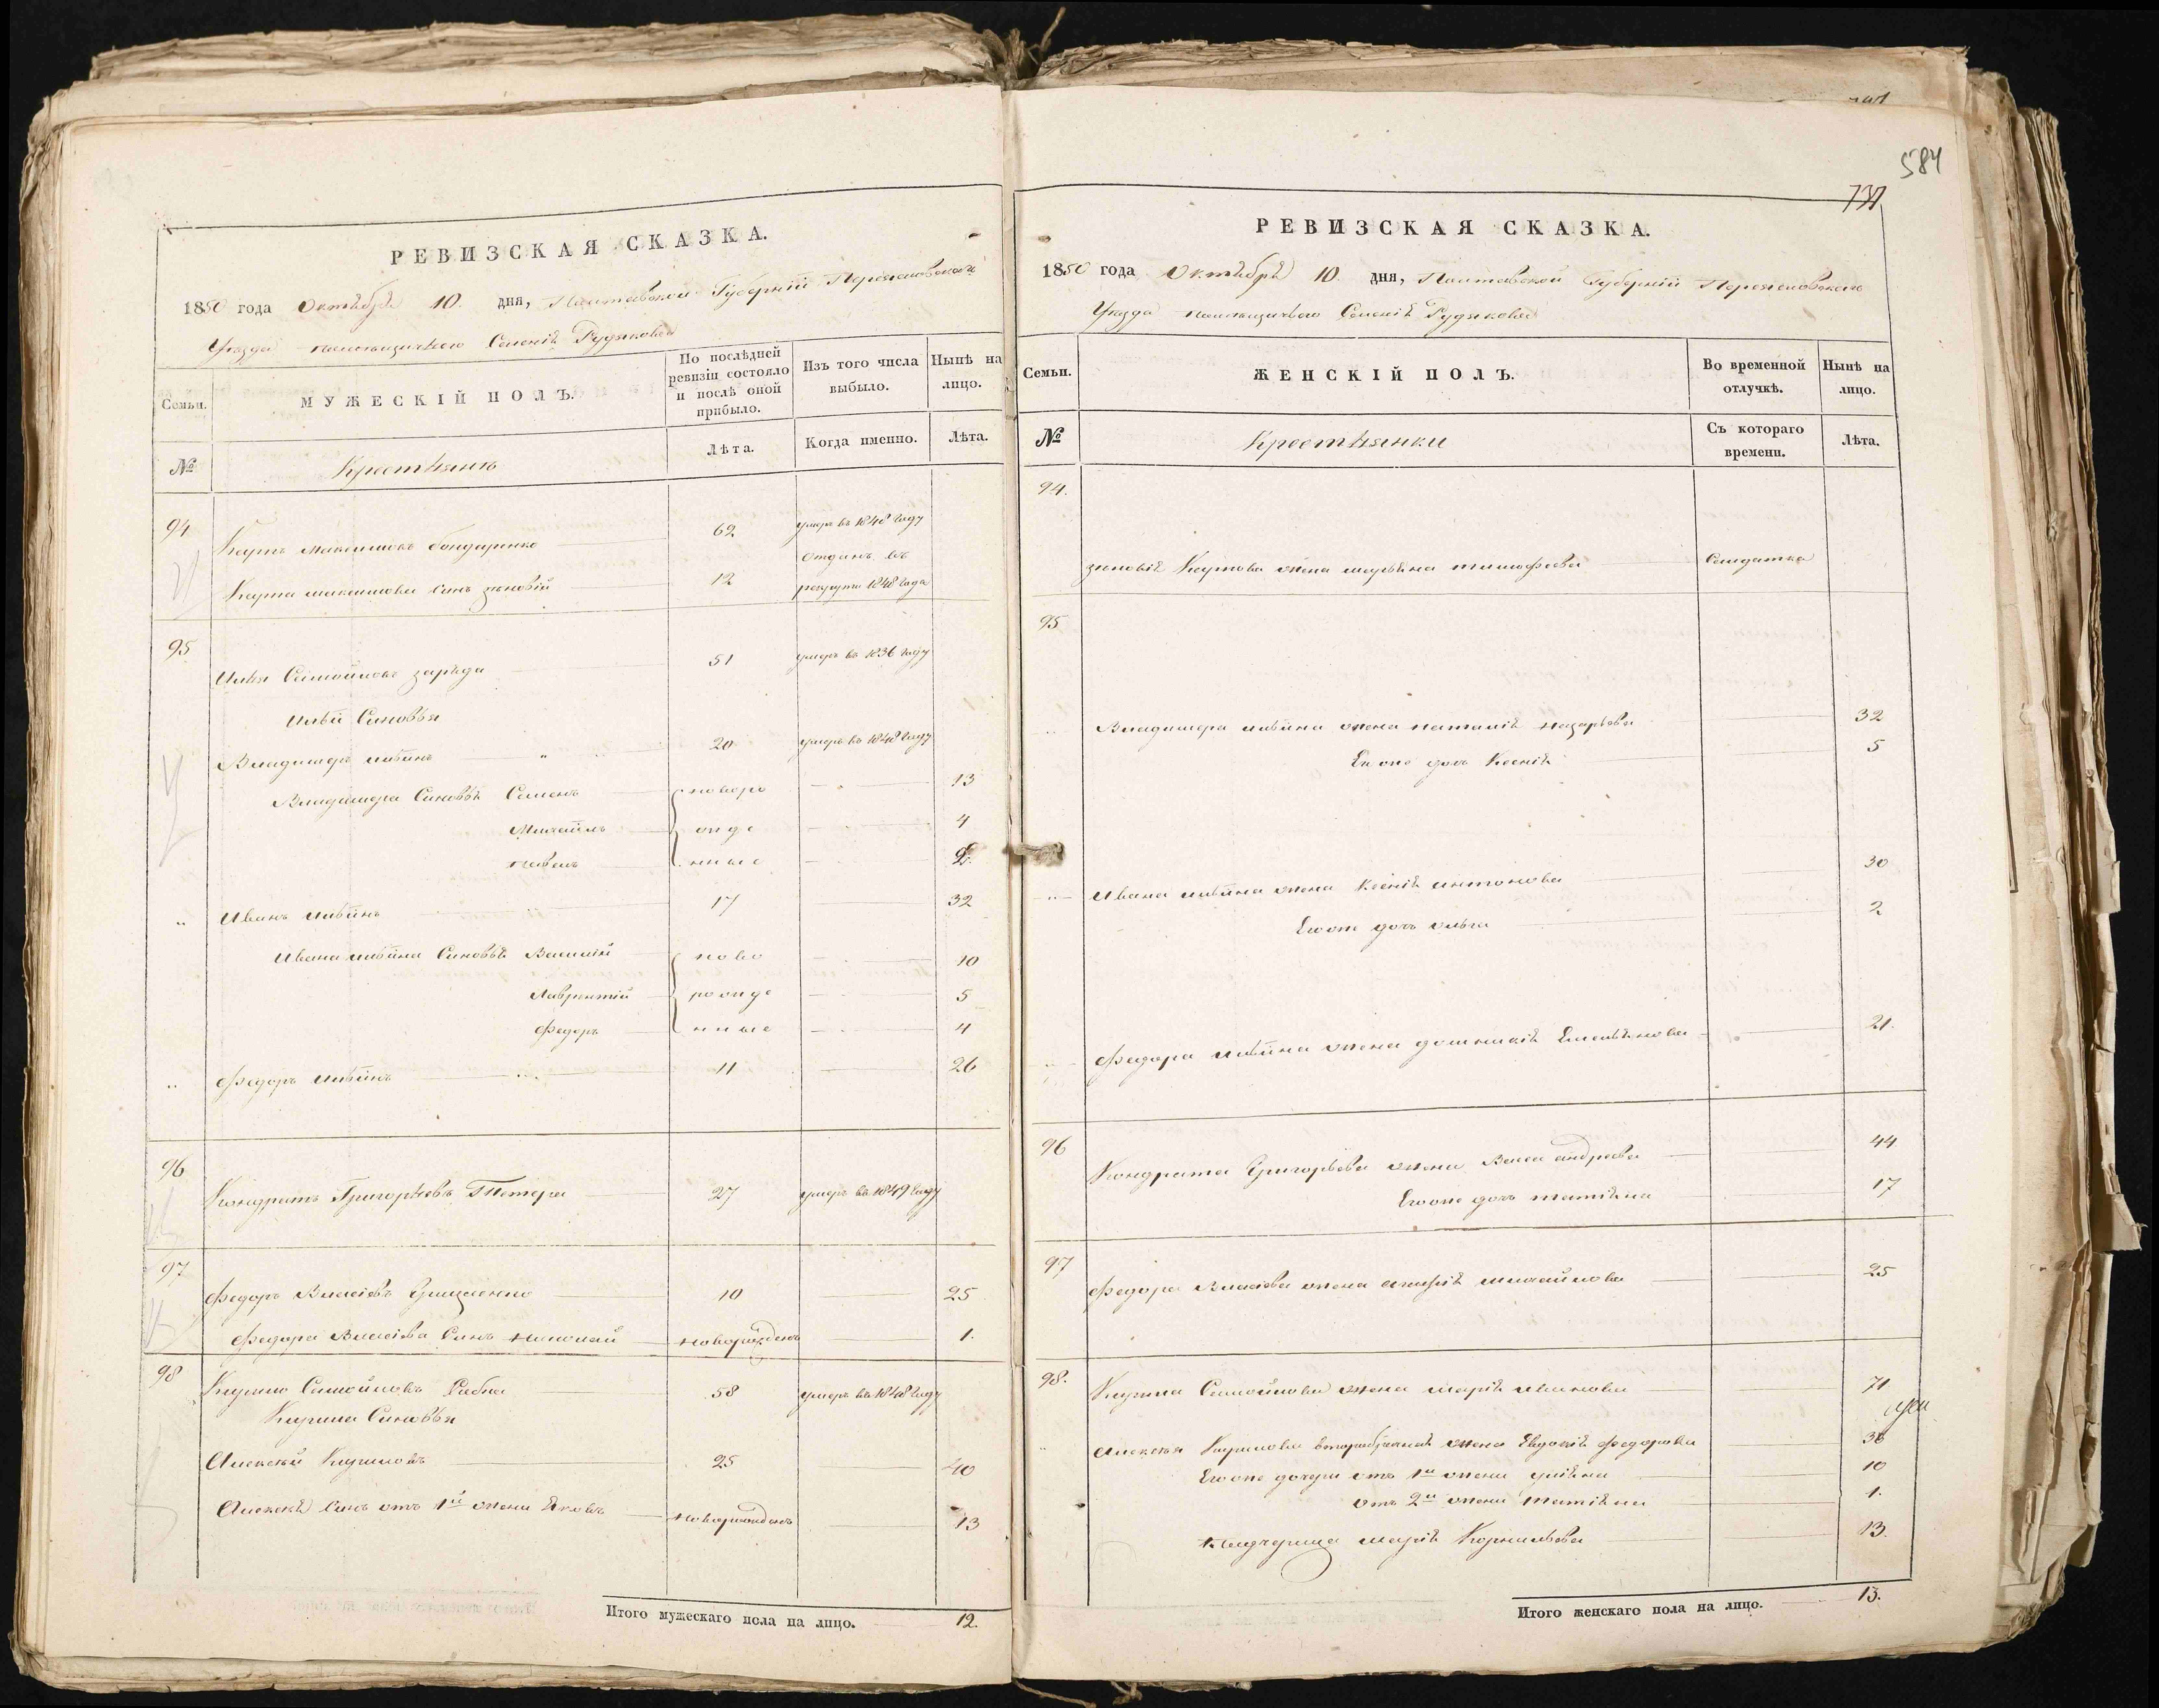 584
737
РЕВИЗСКАЯ СКАЗКА.
1850 года Октября 10 дня, Полтавской Губерніи Переяславскаго
Уѣзда помѣщичьяго Селенія Рудяковъ
Семьи. МУЖЕСКІЙ ПОЛЪ. По послѣдней ревизіи состояло и послѣ оной прибыло. Изъ того числа выбыло. Ныпѣ на лицо.
№ Крестьянъ Лѣта. Когда именно. Лѣта.
94 Карпъ Максимовъ бондаренко 62 умеръ въ 1848 году
Карпа максимова Синъ зѣновій 12 отданъ въ рекруты 1848 года
95 Илья Самойловъ 51 умеръ въ 1836 году
Ильи Синовья
Владимеръ ильинъ 20 умеръ въ 1848 году
Владимера Синовья Семенъ новоро 13
Михайлъ жде 4
павелъ нные
Иванъ ильинъ 17 32
Ивана ильина Синовья Василій ново 10
Лаврентій рожде 5
федоръ нные 4
федоръ ильинъ 11 26
96 Кондратъ Григорьевъ 27 умеръ въ 1849 году
97 федоръ Власіевъ Грищенко 10 25
федора Власіева Синъ николай новорожденъ 1.
98 Кирило Самойловъ 58 умеръ въ 1848 году
Кирила Синовья
Алексѣй Кириловъ 25 40
Алексѣя Синъ отъ 1й жены Яковъ новорожденъ 13
Итого мужескаго пола на лицо. 12.
РЕВИЗСКАЯ СКАЗКА.
1850 года Октября 10 дня, Полтавской Губерніи Переяславскаго
Уѣзда помѣщичьяго Селенія Рудяковъ
Семьи. ЖЕНСКІЙ ПОЛЪ. Во временной отлучкѣ. Ныпѣ на лицо.
№ Крестьянки Съ котораго времени. Лѣта.
94.
зѣновія Карпова жена марьяна тимофеева Солдатка
95
Владимера ильина жена наталія назарьева 32
Его же дочь Ксенія 5
Ивана ильина жена Ксенія антонова 30
Его же дочь ольга 2
федора ильина жена домникія Емельянова 21.
96 Кондрата Григорьева жена Васса андреева 44
Его же дочь татіяна 17
97 федора Власіева жена михайлова 25
98. Кирила Самойлова жена марія иванова 71
Алексѣя Кирилова второбрачная жена Евдокія федорова
Его же дочери отъ 1й жены уліяна 10
отъ 2й жены татіяна 1.
падчерица марія Корнильева 13.
Итого женскаго пола на лицо. 13.